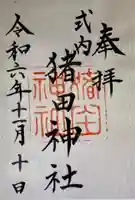 奉拝
式内
猪田神社
令和六年十一月十日